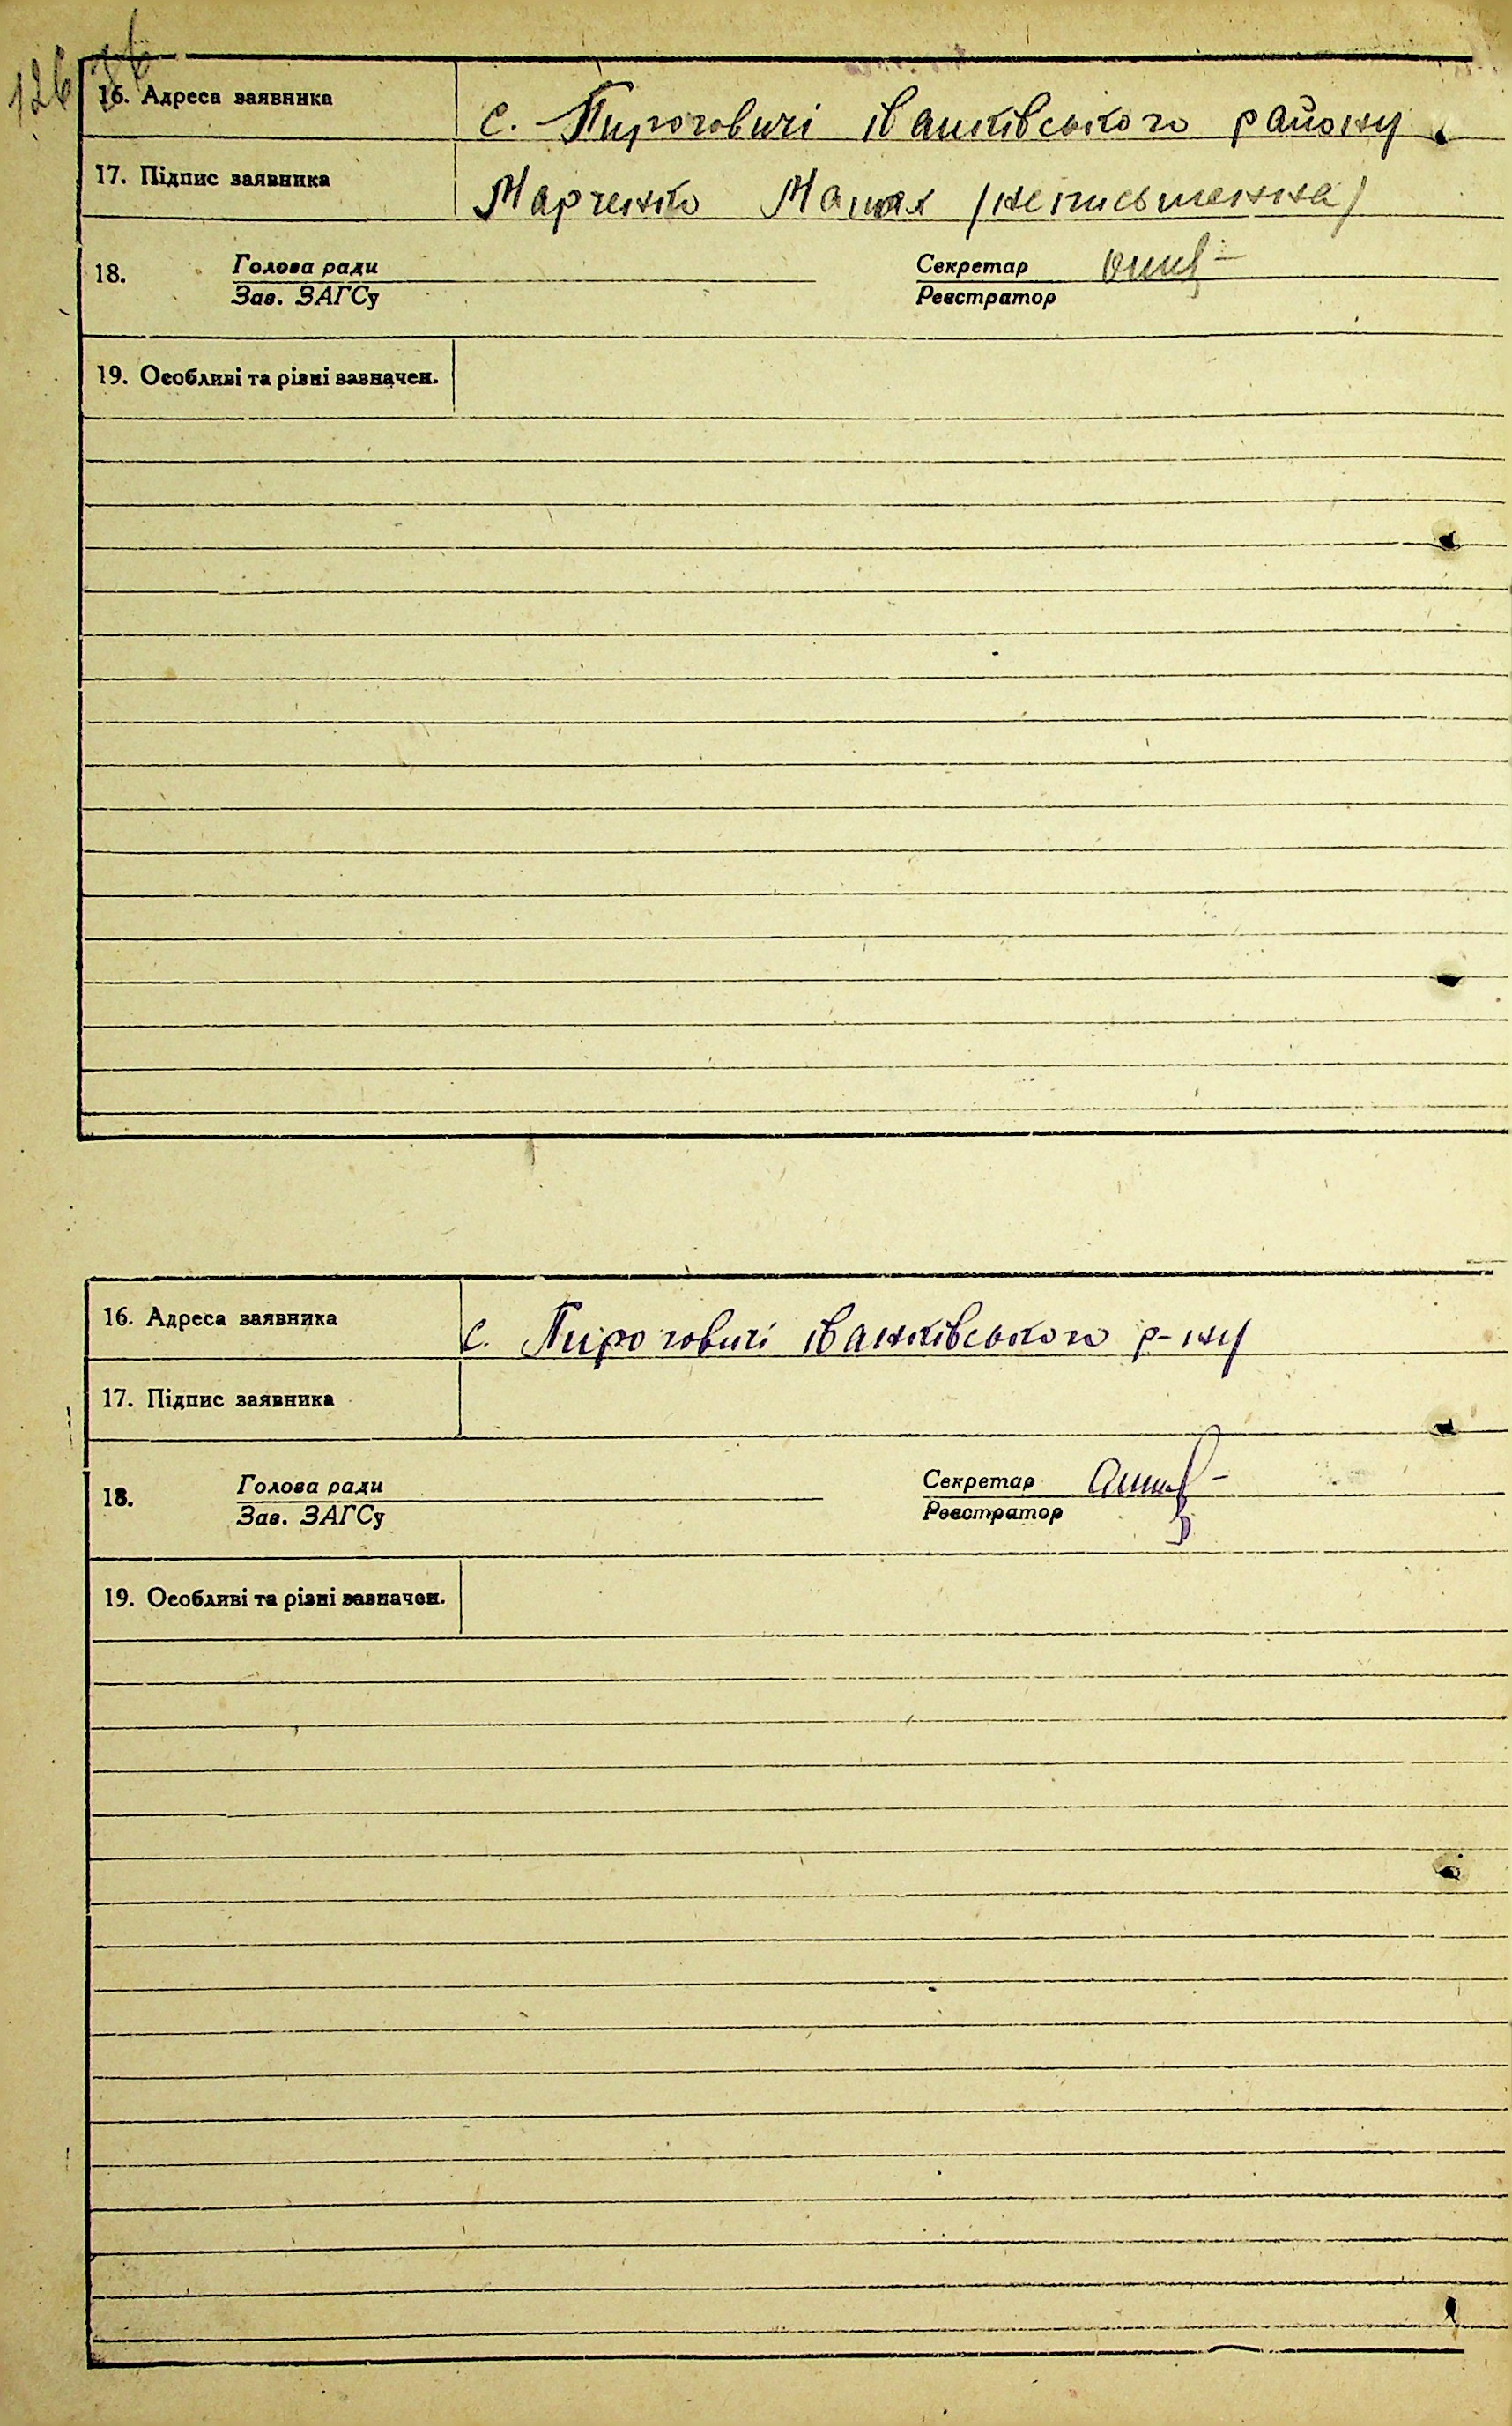 126
16. Адреса заявника с. Пироговичі іванківського району
17. Підпис заявника Марченко (неписьменна)
18. Голова ради Секретар
Зав. ЗАГСу Реєстратор
19. Особливі та різні зазначен.
16. Адреса заявника с. Пироговичі іванківського р-ну
17. Підпис заявника
18. Голова ради Секретар
Зав. ЗАГСу Реєстратор
19. Особливі та різні зазначен.